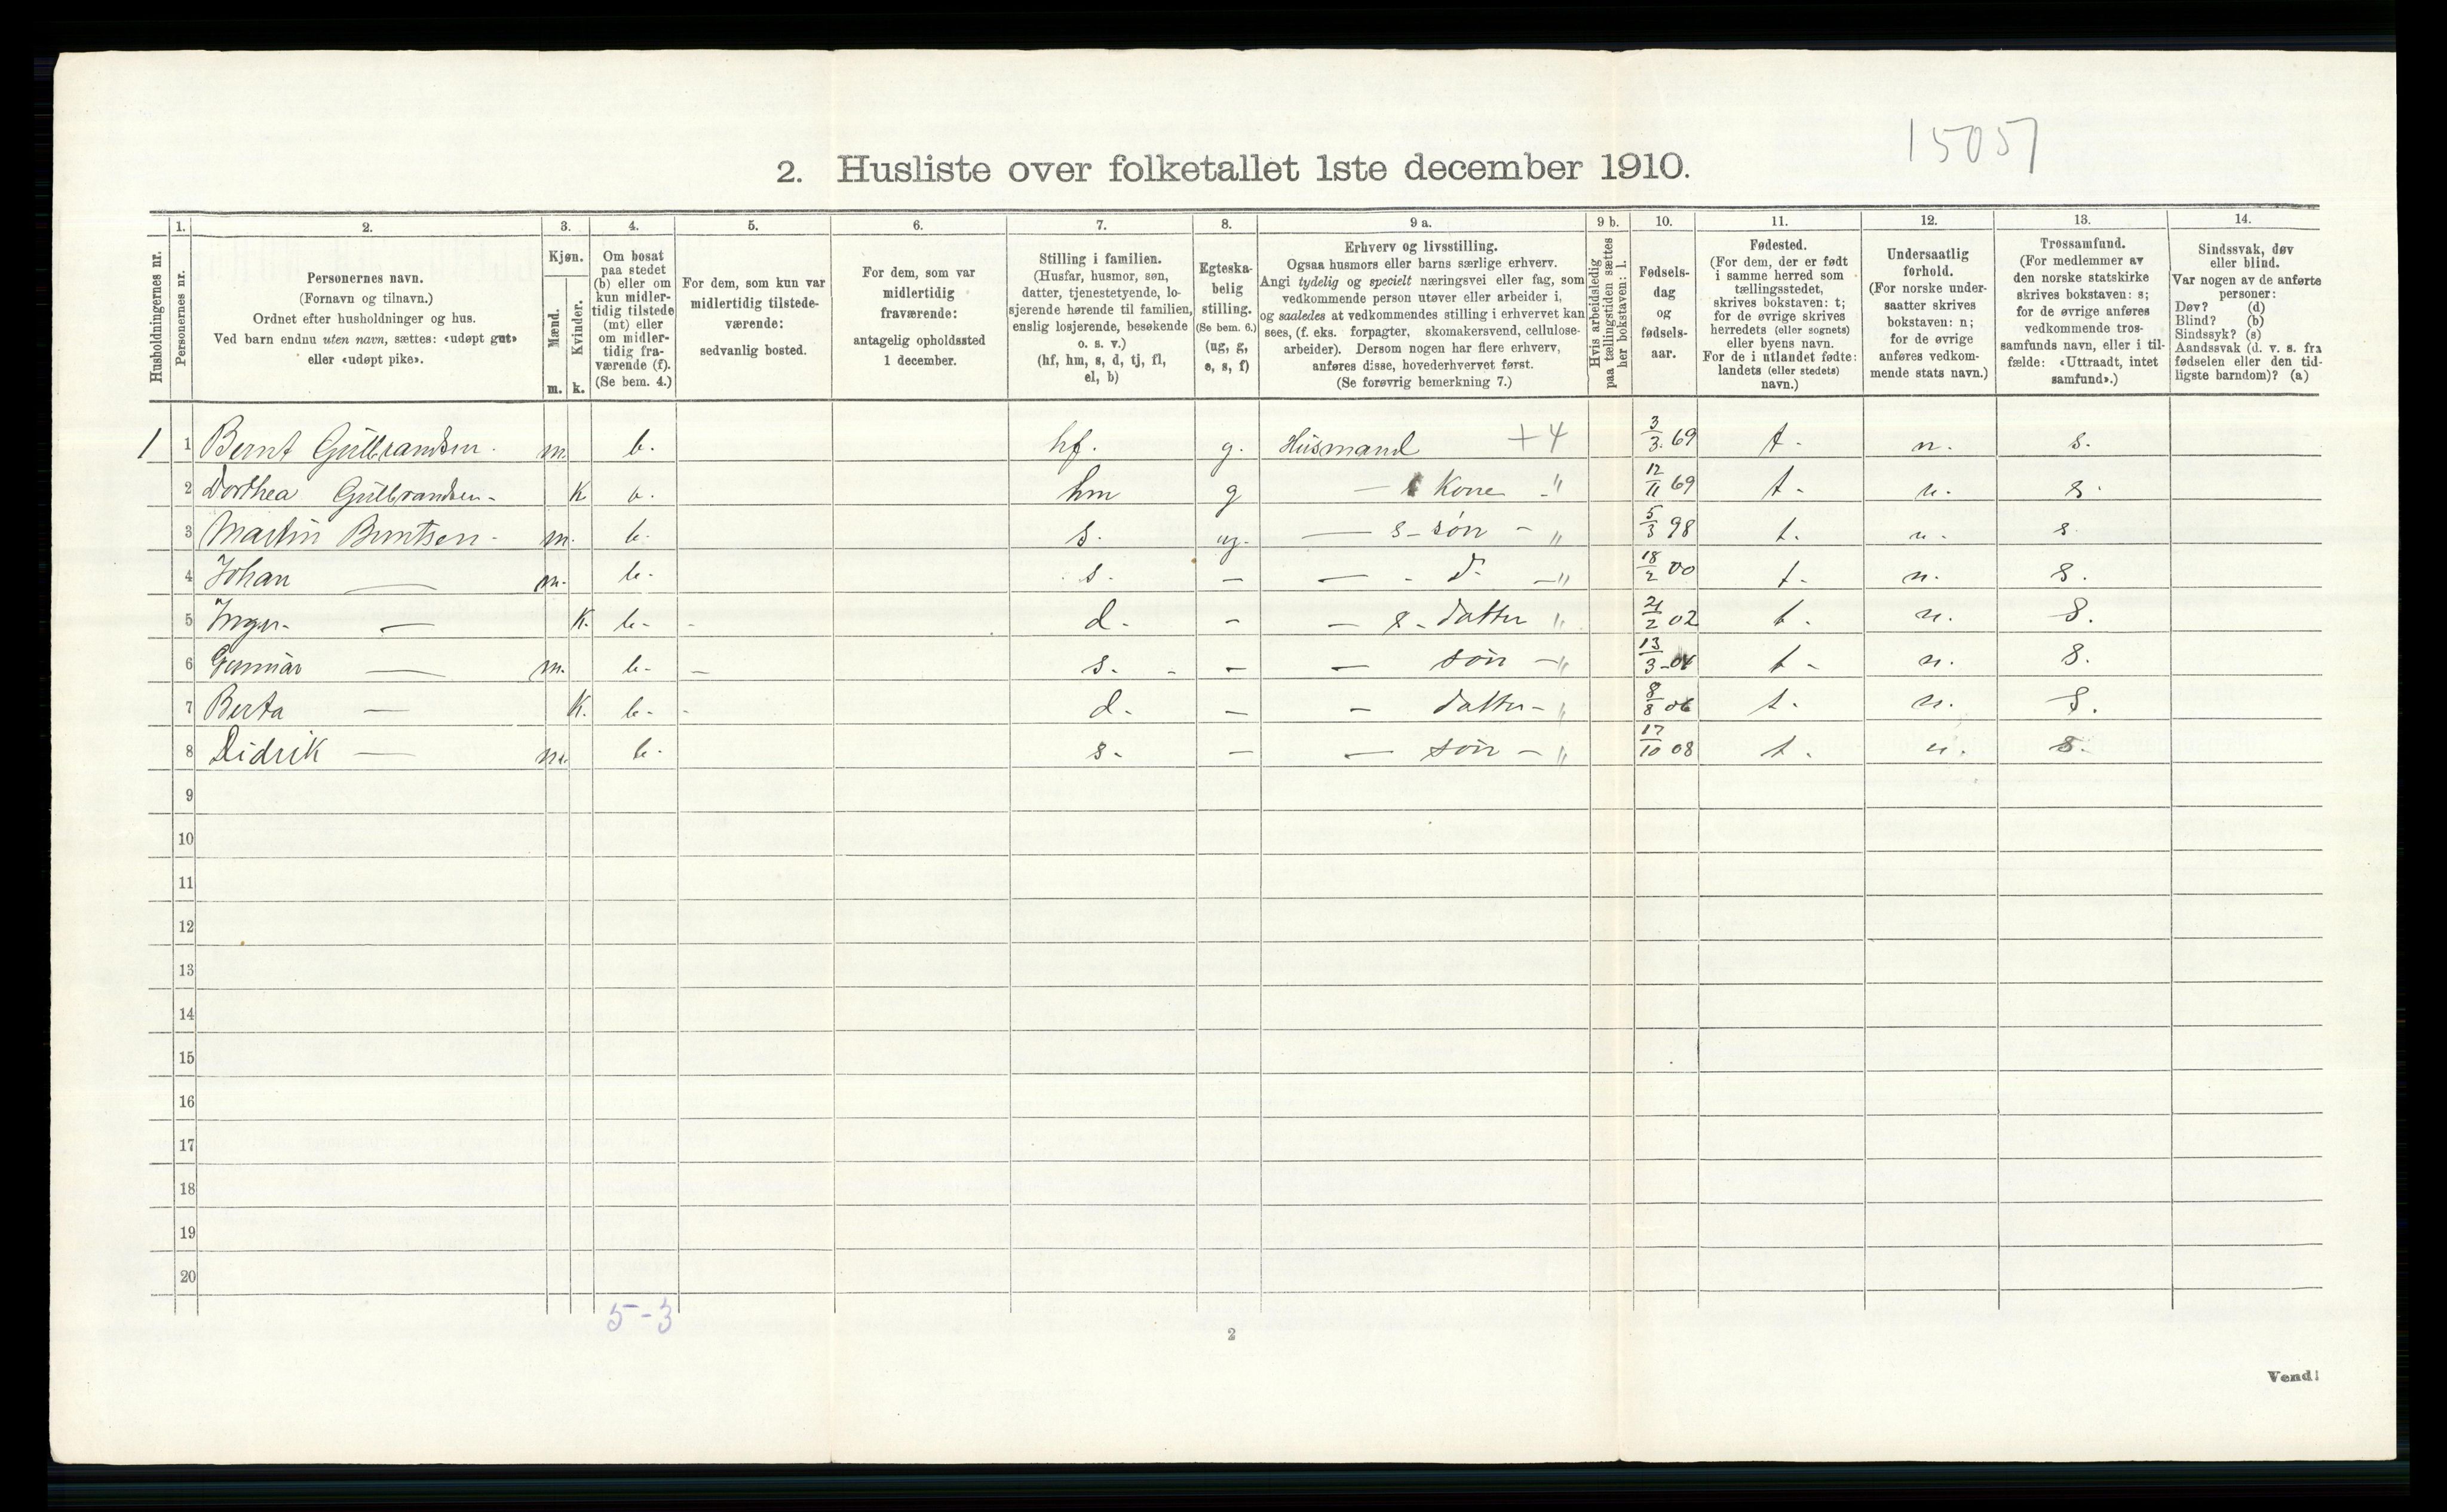 15057
2. Husliste over folketallet 1ste december 1910.
1. 2. 3. 4. 5. 6. 7. 8. 9 a. 9 b. 10. 11. 12. 13. 14.
Husholdningernes nr.
Personernes nr.
Personernes navn.
(Fornavn og tilnavn.)
Ordnet efter husholdninger og hus.
Ved barn endnu uten navn, sættes: «udøpt gut»
eller «udøpt pike».
Kjøn.
Mænd.
Kvinder.
m. k.
Om bosat
paa stedet
(b) eller om
kun midler-
tidig tilstede
(mt) eller
om midler-
tidig fra-
værende (f).
(Se bem. 4.)
For dem, som kun var
midlertidig tilstede-
værende:
sedvanlig bosted.
For dem, som var
midlertidig
fraværende:
antagelig opholdssted
1 december.
Stilling i familien.
(Husfar, husmor, søn,
datter, tjenestetyende, lo-
sjerende hørende til familien,
enslig losjerende, besøkende
o. s. v.)
(hf, hm, s, d, tj, fl,
el, b)
Egteska-
belig
stilling.
(Se bem. 6.)
(ug, g,
e, s, f)
Erhverv og livsstilling.
Ogsaa husmors eller barns særlige erhverv.
Angi tydelig og specielt næringsvei eller fag, som
vedkommende person utøver eller arbeider i,
og saaledes at vedkommendes stilling i erhvervet kan
sees, (f. eks. forpagter, skomakersvend, cellulose-
arbeider). Dersom nogen har flere erhverv,
anføres disse, hovederhvervet først.
(Se forøvrig bemerkning 7.)
Hvis arbeidsledig
paa tællingstiden sættes
her bokstaven: l.
Fødsels-
dag
og
fødsels-
aar.
Fødested.
(For dem, der er født
i samme herred som
tællingsstedet,
skrives bokstaven: t;
for de øvrige skrives
herredets (eller sognets)
eller byens navn.
For de i utlandet fødte:
landets (eller stedets)
navn.)
Undersaatlig
forhold.
(For norske under-
saatter skrives
bokstaven: n;
for de øvrige
anføres vedkom-
mende stats navn.)
Trossamfund.
(For medlemmer av
den norske statskirke
skrives bokstaven: s;
for de øvrige anføres
vedkommende tros-
samfunds navn, eller i til-
fælde: «Uttraadt, intet
samfund».)
Sindssvak, døv
eller blind.
Var nogen av de anførte
personer:
Døv? (d)
Blind? (b)
Sindssyk? (s)
Aandssvak (d. v. s. fra
fødselen eller den tid-
ligste barndom)? (a)
1 1 Bernt Gulbrandsen. m. b. hf. g. Husmand +4 3/3.69 t. n. s.
2 Dorthea Gulbrandsen. K b. hm g — Kone " 12/11 69 t. n. s.
3 Martin Berntsen. m. b. s. ug. — s-søn - " 5/3 98 t. n. s.
4 Johan — m. b. s. — — - d. —" 18/2 00 t. n. s.
5 Inger — K. b. - d. - — s. datter " 21/2 02 t. n. s.
6 Gunnar — m. b. - s. - - — søn —" 13/3-04 t. n. s.
7 Berta — K. b. - d. — — datter - " 8/8 06 t. n. s.
8 Didrik — m. b. s. — — søn —" 17/10 08 t. n. s.
9
10
11
12
13
14
15
16
17
18
19
20
5-3
2
Vend!